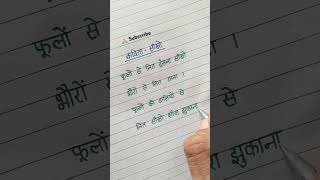 Subscribe
कविता - सीखो
फूलों से नित हँसना सीखो
भौंरों से नित गाना ।
फूलों की डालियों से
नित सीखो शीश झुकाना